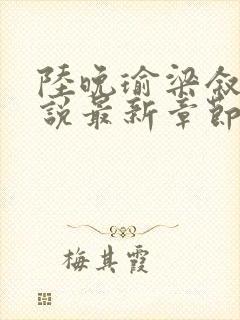 陸晚瑜梁叙
說最新章節
梅其霞